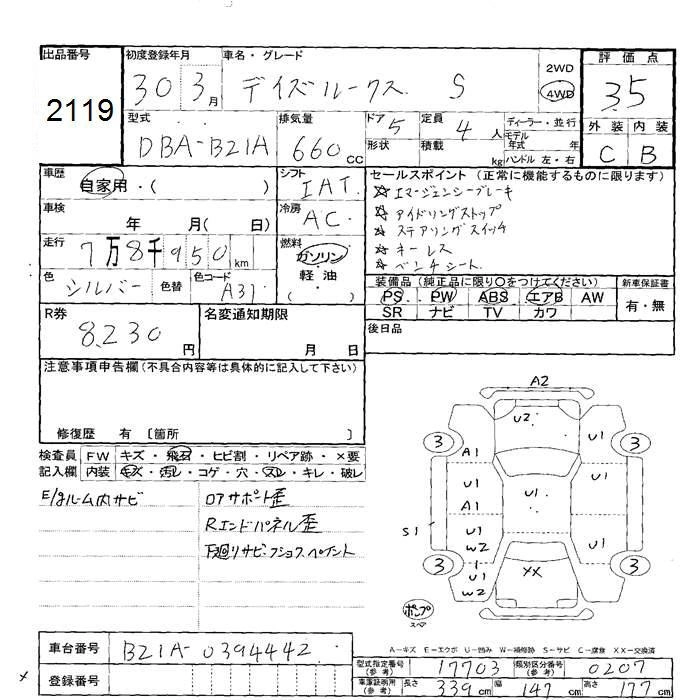 出品番号
2119
初度登録年月
30 3月
車名・グレード
デイズルークス S
2WD
4WD
評価点
3.5
外装 内装
C B
型式
DBA-B21A
排気量
660cc
ドア 5
形状
定員 4人
積載 kg
ディーラー・並行
モデル年式 年式
ハンドル 左・右
車歴
自家用・( )
シフト
IAT
セールスポイント (正常に機能するものに限ります)
☆ エマージェンシーブレーキ
☆ アイドリングストップ
☆ ステアリングスイッチ
☆ キーレス
☆ ベンチシート
車検
年 月( 日)
冷房
AC
走行
7万8千950km
燃料
ガソリン
軽油
( )
色
シルバー
色替
色コード
A31
装備品 (純正品に限り○をつけてください)
PS PW ABS エアB AW
SR ナビ TV カワ
新車保証書
有・無
R券
8,230円
名変通知期限
月 日
後日品
注意事項申告欄(不具合内容等は具体的に記入して下さい)
修復歴 有 〔箇所 〕
検査員記入欄
FW キズ・飛石・ヒビ割・リペア跡・×要
内装 キズ・汚レ・コゲ・穴・スレ・キレ・破レ
E/gルーム内サビ
ロアサポート歪
Rエンドパネル歪
下廻りサビ・フショス・ペイント
A2
U2
3
3
A1
U1
U1
U1
A1
S1
U1
U1
W2
3
3
1
U1
W2
XX
ポンプ
スペア
A-キズ E-エクボ U-凹み W-補修跡 S-サビ C-腐食 XX-交換済
車台番号
B21A-0394442
登録番号
型式指定番号(参考)
17703
類別区分番号(参考)
0207
車庫証明用(参考)
長さ 339cm
幅 147cm
高さ 177cm